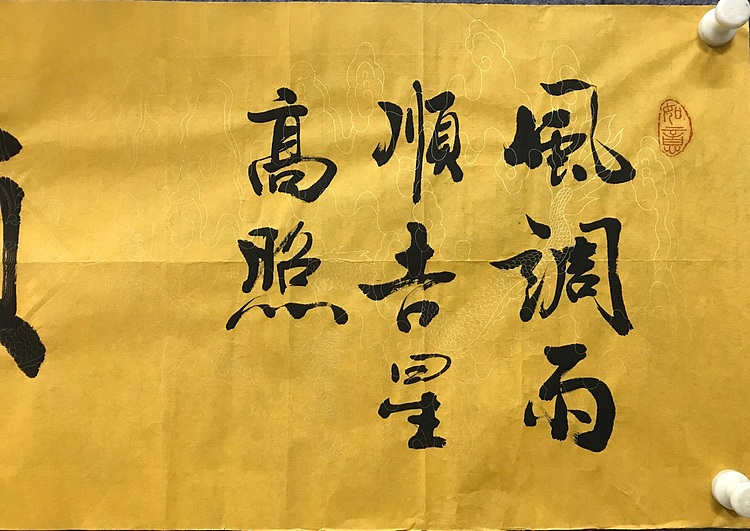 如意
風調雨
順吉星
高照